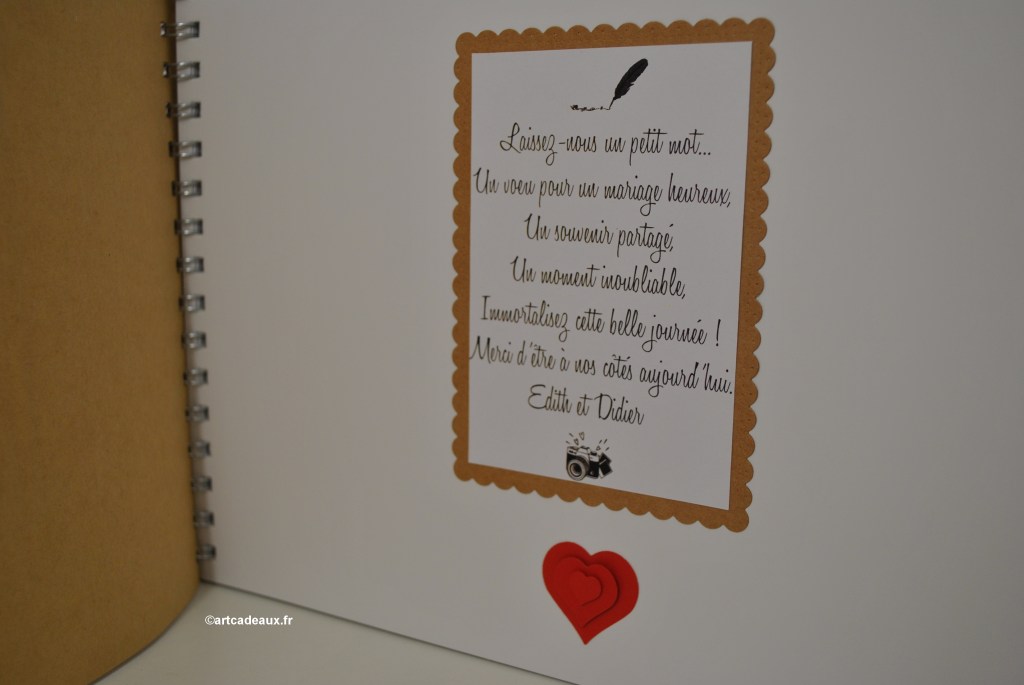 Laissez-nous un petit mot...
Un voeu pour un mariage heureux,
Un souvenir partagé,
Un moment inoubliable,
Immortalisez cette belle journée !
Merci d'être à nos côtés aujourd'hui.
Edith et Didier
©artcadeaux.fr